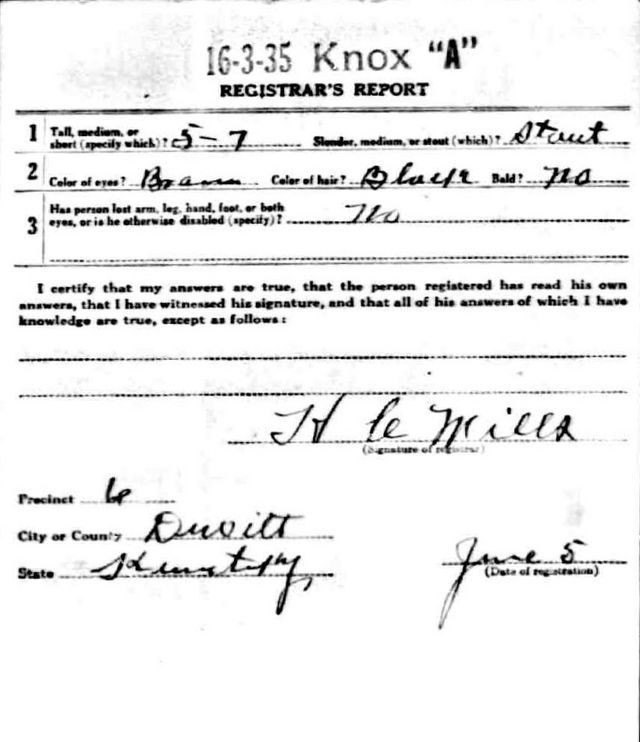 16-3-35 Knox "A"
REGISTRAR'S REPORT
1 Tall, medium, or short (specify which)? 5-7 Slender, medium, or stout (which)? Stout
2 Color of eyes? Brown Color of hair? Black Bald? No
3 Has person lost arm, leg, hand, foot, or both
eyes, or is he otherwise disabled (specify)? No
I certify that my answers are true, that the person registered has read his own
answers, that I have witnessed his signature, and that all of his answers of which I have
knowledge are true, except as follows:
H C Mills
(Signature of registrar)
Precinct 6
City or County Dewitt
State Kentucky June 5
(Date of registration)